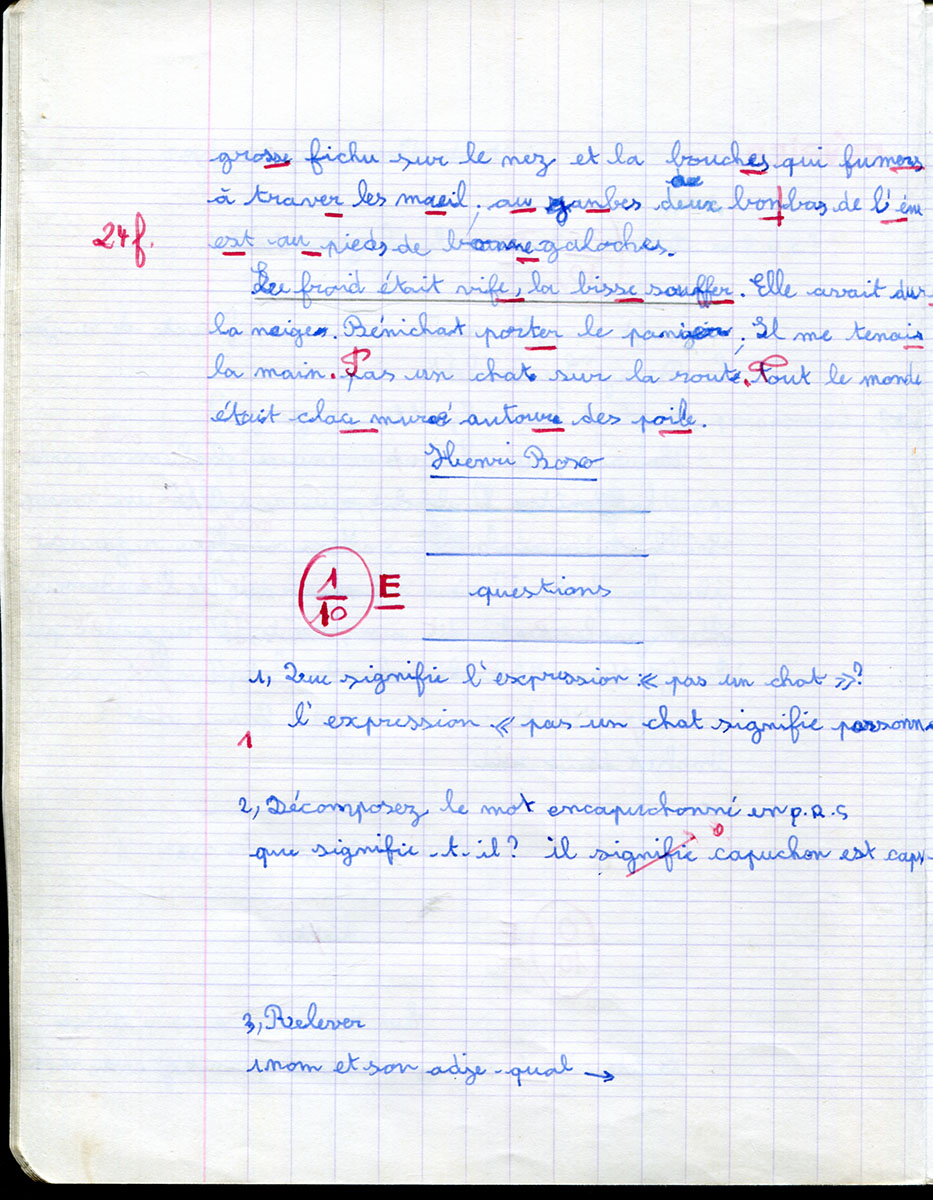 grosse fichu sur le nez et la bouches qui fumers
à traver les maeil, au ganbes deux bonbas de l'éne
24f.
est au pieds de bonne galoches.
Le froid était vife, la bisse souffer. Elle avait dur
la neige. Bénichat porter le panier, Il me tenais
la main. Pas un chat sur la route. Tout le monde
était clac muré autoure des poile.
Henri Boso
1/10 E
questions
1, Que signifie l'expression « pas un chat »?
l'expression « pas un chat signifie personn
1
2, Décomposez le mot encapuchonné en p.R.S
que signifie-t-il? il signifie capuchon est cap
0
3, Relever
1 nom et son adje-qual →